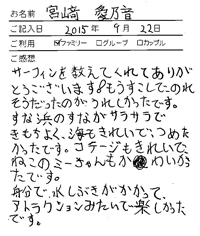 お名前 宮﨑 愛乃音
ご記入日 2015年 9月 22日
ご利用 ☑ファミリー □グループ □カップル
ご感想
サーフィンを教えてくれてありが
とうございます。もうすこしでのれ
そうだったのがうれしかったです。
すな浜のすながサラサラで
きもちよく、海もきれいで、つめた
かったです。コテージもきれいで、
ねこのミーちゃんもかわいかっ
たです。
舟台で、水しぶきがかかって、
アトラクションみたいで楽しかった
です。